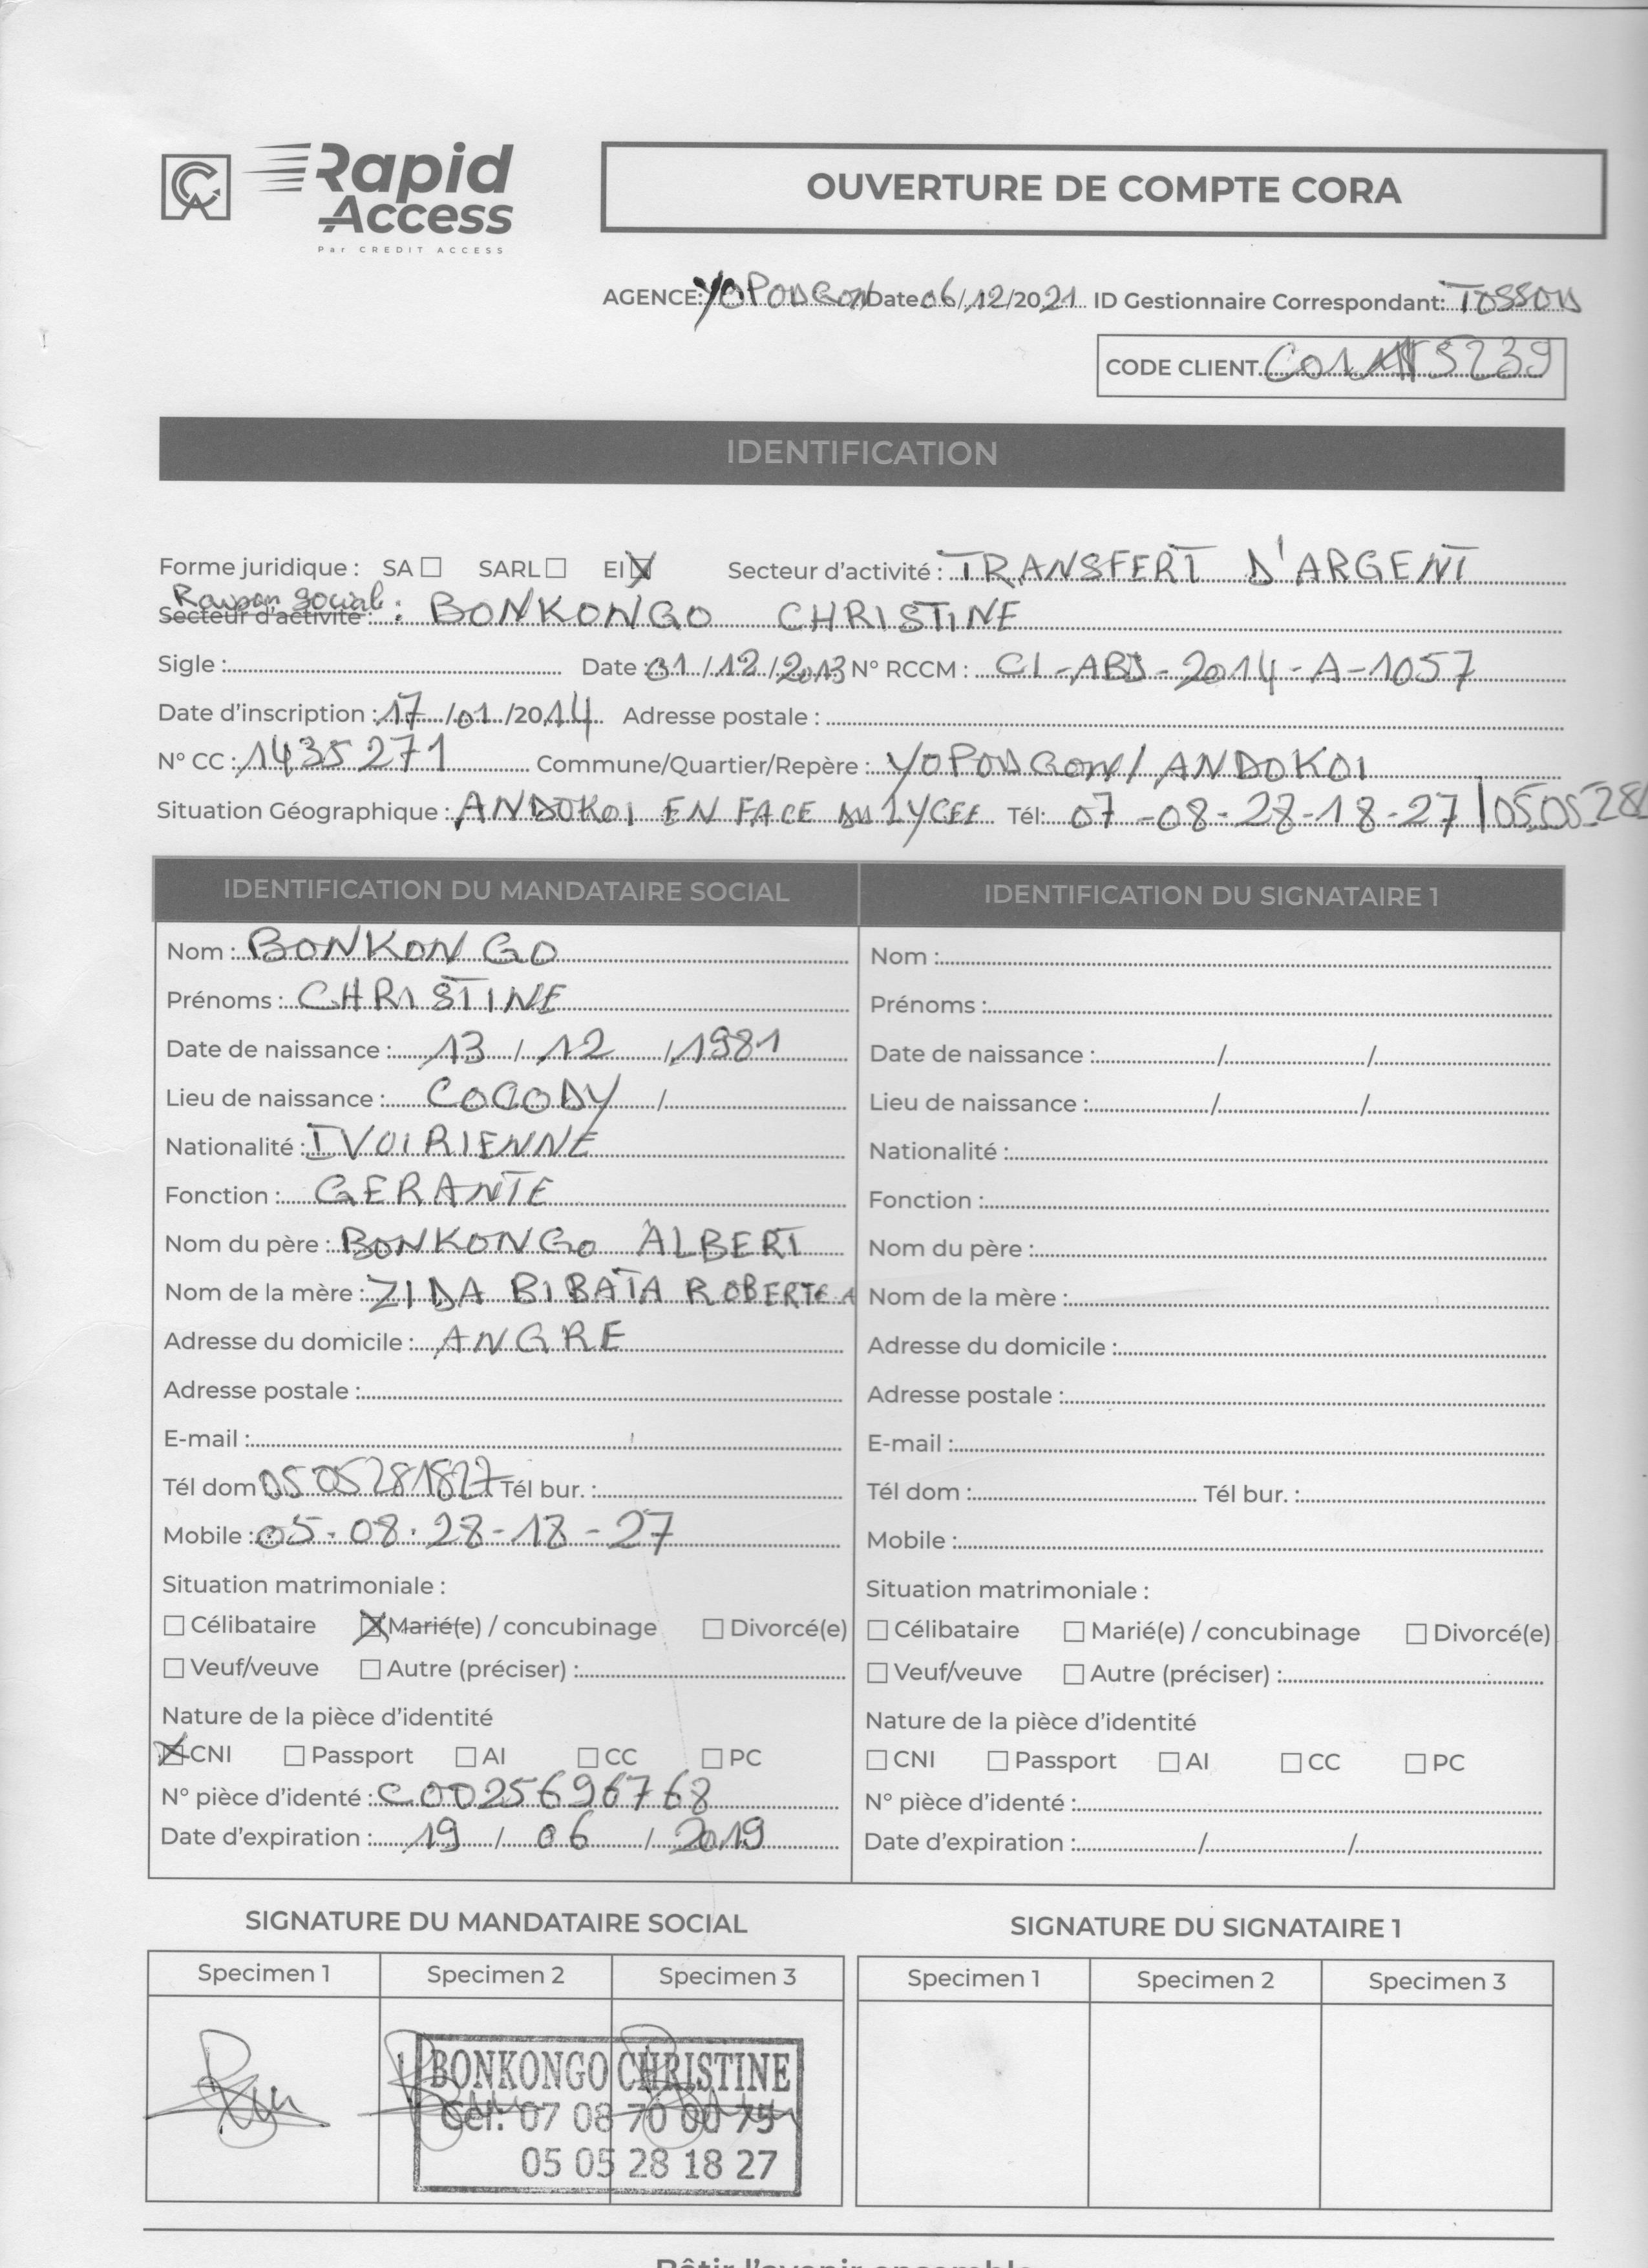 CA Rapid Access
Par CREDIT ACCESS
OUVERTURE DE COMPTE CORA
AGENCE: YOPOUGON Date 06/12/2021 ID Gestionnaire Correspondant: TOSSOU
CODE CLIENT
IDENTIFICATION
Forme juridique : SA ☐ SARL ☐ EI ☒ Secteur d'activité : TRANSFERT D'ARGENT
Raison social :
Secteur d'activité : BONKONGO CHRISTINE
Sigle : Date : 01/12/2013 N° RCCM : CI-ABJ-2014-A-1057
Date d'inscription : 17/01/2014 Adresse postale :
N° CC : 1435271 Commune/Quartier/Repère : YOPOUGON/ANDOKOI
Situation Géographique : ANDOKOI EN FACE DU LYCEE Tél: 07-08-28-18-27 / 050528
IDENTIFICATION DU MANDATAIRE SOCIAL
Nom : BONKONGO
Prénoms : CHRISTINE
Date de naissance : 13/12/1981
Lieu de naissance : COCODY /
Nationalité : IVOIRIENNE
Fonction : GERANTE
Nom du père : BONKONGO ALBERT
Nom de la mère : ZIDA BIBATA
Adresse du domicile : ANGRE
Adresse postale :
E-mail :
Tél dom 0505281827 Tél bur. :
Mobile : 05-08-28-18-27
Situation matrimoniale :
☐ Célibataire ☒ Marié(e) / concubinage ☐ Divorcé(e)
☐ Veuf/veuve ☐ Autre (préciser) :
Nature de la pièce d'identité
☒ CNI ☐ Passport ☐ AI ☐ CC ☐ PC
N° pièce d'identé : C0025696768
Date d'expiration : 19/06/2019
IDENTIFICATION DU SIGNATAIRE 1
Nom :
Prénoms :
Date de naissance : / /
Lieu de naissance : / /
Nationalité :
Fonction :
Nom du père :
Nom de la mère :
Adresse du domicile :
Adresse postale :
E-mail :
Tél dom : Tél bur. :
Mobile :
Situation matrimoniale :
☐ Célibataire ☐ Marié(e) / concubinage ☐ Divorcé(e)
☐ Veuf/veuve ☐ Autre (préciser) :
Nature de la pièce d'identité
☐ CNI ☐ Passport ☐ AI ☐ CC ☐ PC
N° pièce d'identé :
Date d'expiration : / /
SIGNATURE DU MANDATAIRE SOCIAL
Specimen 1 Specimen 2 Specimen 3
BONKONGO CHRISTINE
Cel: 07 08 70 00 75
05 05 28 18 27
SIGNATURE DU SIGNATAIRE 1
Specimen 1 Specimen 2 Specimen 3
Bâtir l'avenir ensemble